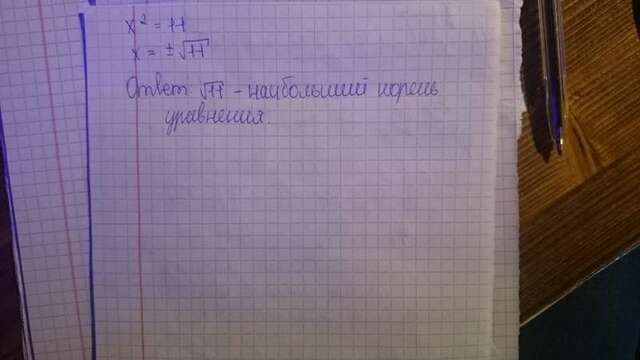 x² = 11
x = ±√11
Ответ √11 - наибольший корень
уравнения.